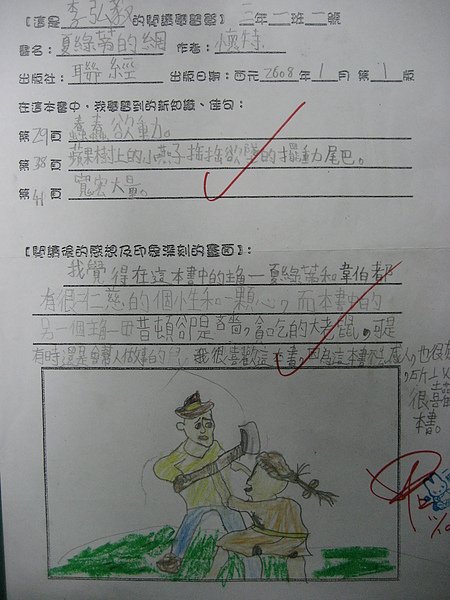 【這是 李弘毅 的閱讀學習單】 三年二班 號
書名：夏綠蒂的網 作者：懷特
出版社：聯經 出版日期：西元2008年1月 第1版
在這本書中，我學習到的新知識、佳句：
第29頁 蠢蠢欲動。
第38頁 蘋果樹上的小燕子搖搖欲墜的擺動尾巴。
第41頁 寬宏大量。
【閱讀後的感想及印象深刻的畫面】：
我覺得在這本書中的主角—夏綠蒂和韋伯都
有很仁慈的個性和一顆心，而本書中的
另一個主角—田普頓卻是 貪吃的大老鼠，可是
有時還是會幫人做事的 我很喜歡這本書，因為這本書不但感人，也很
，所以
很喜
本書。